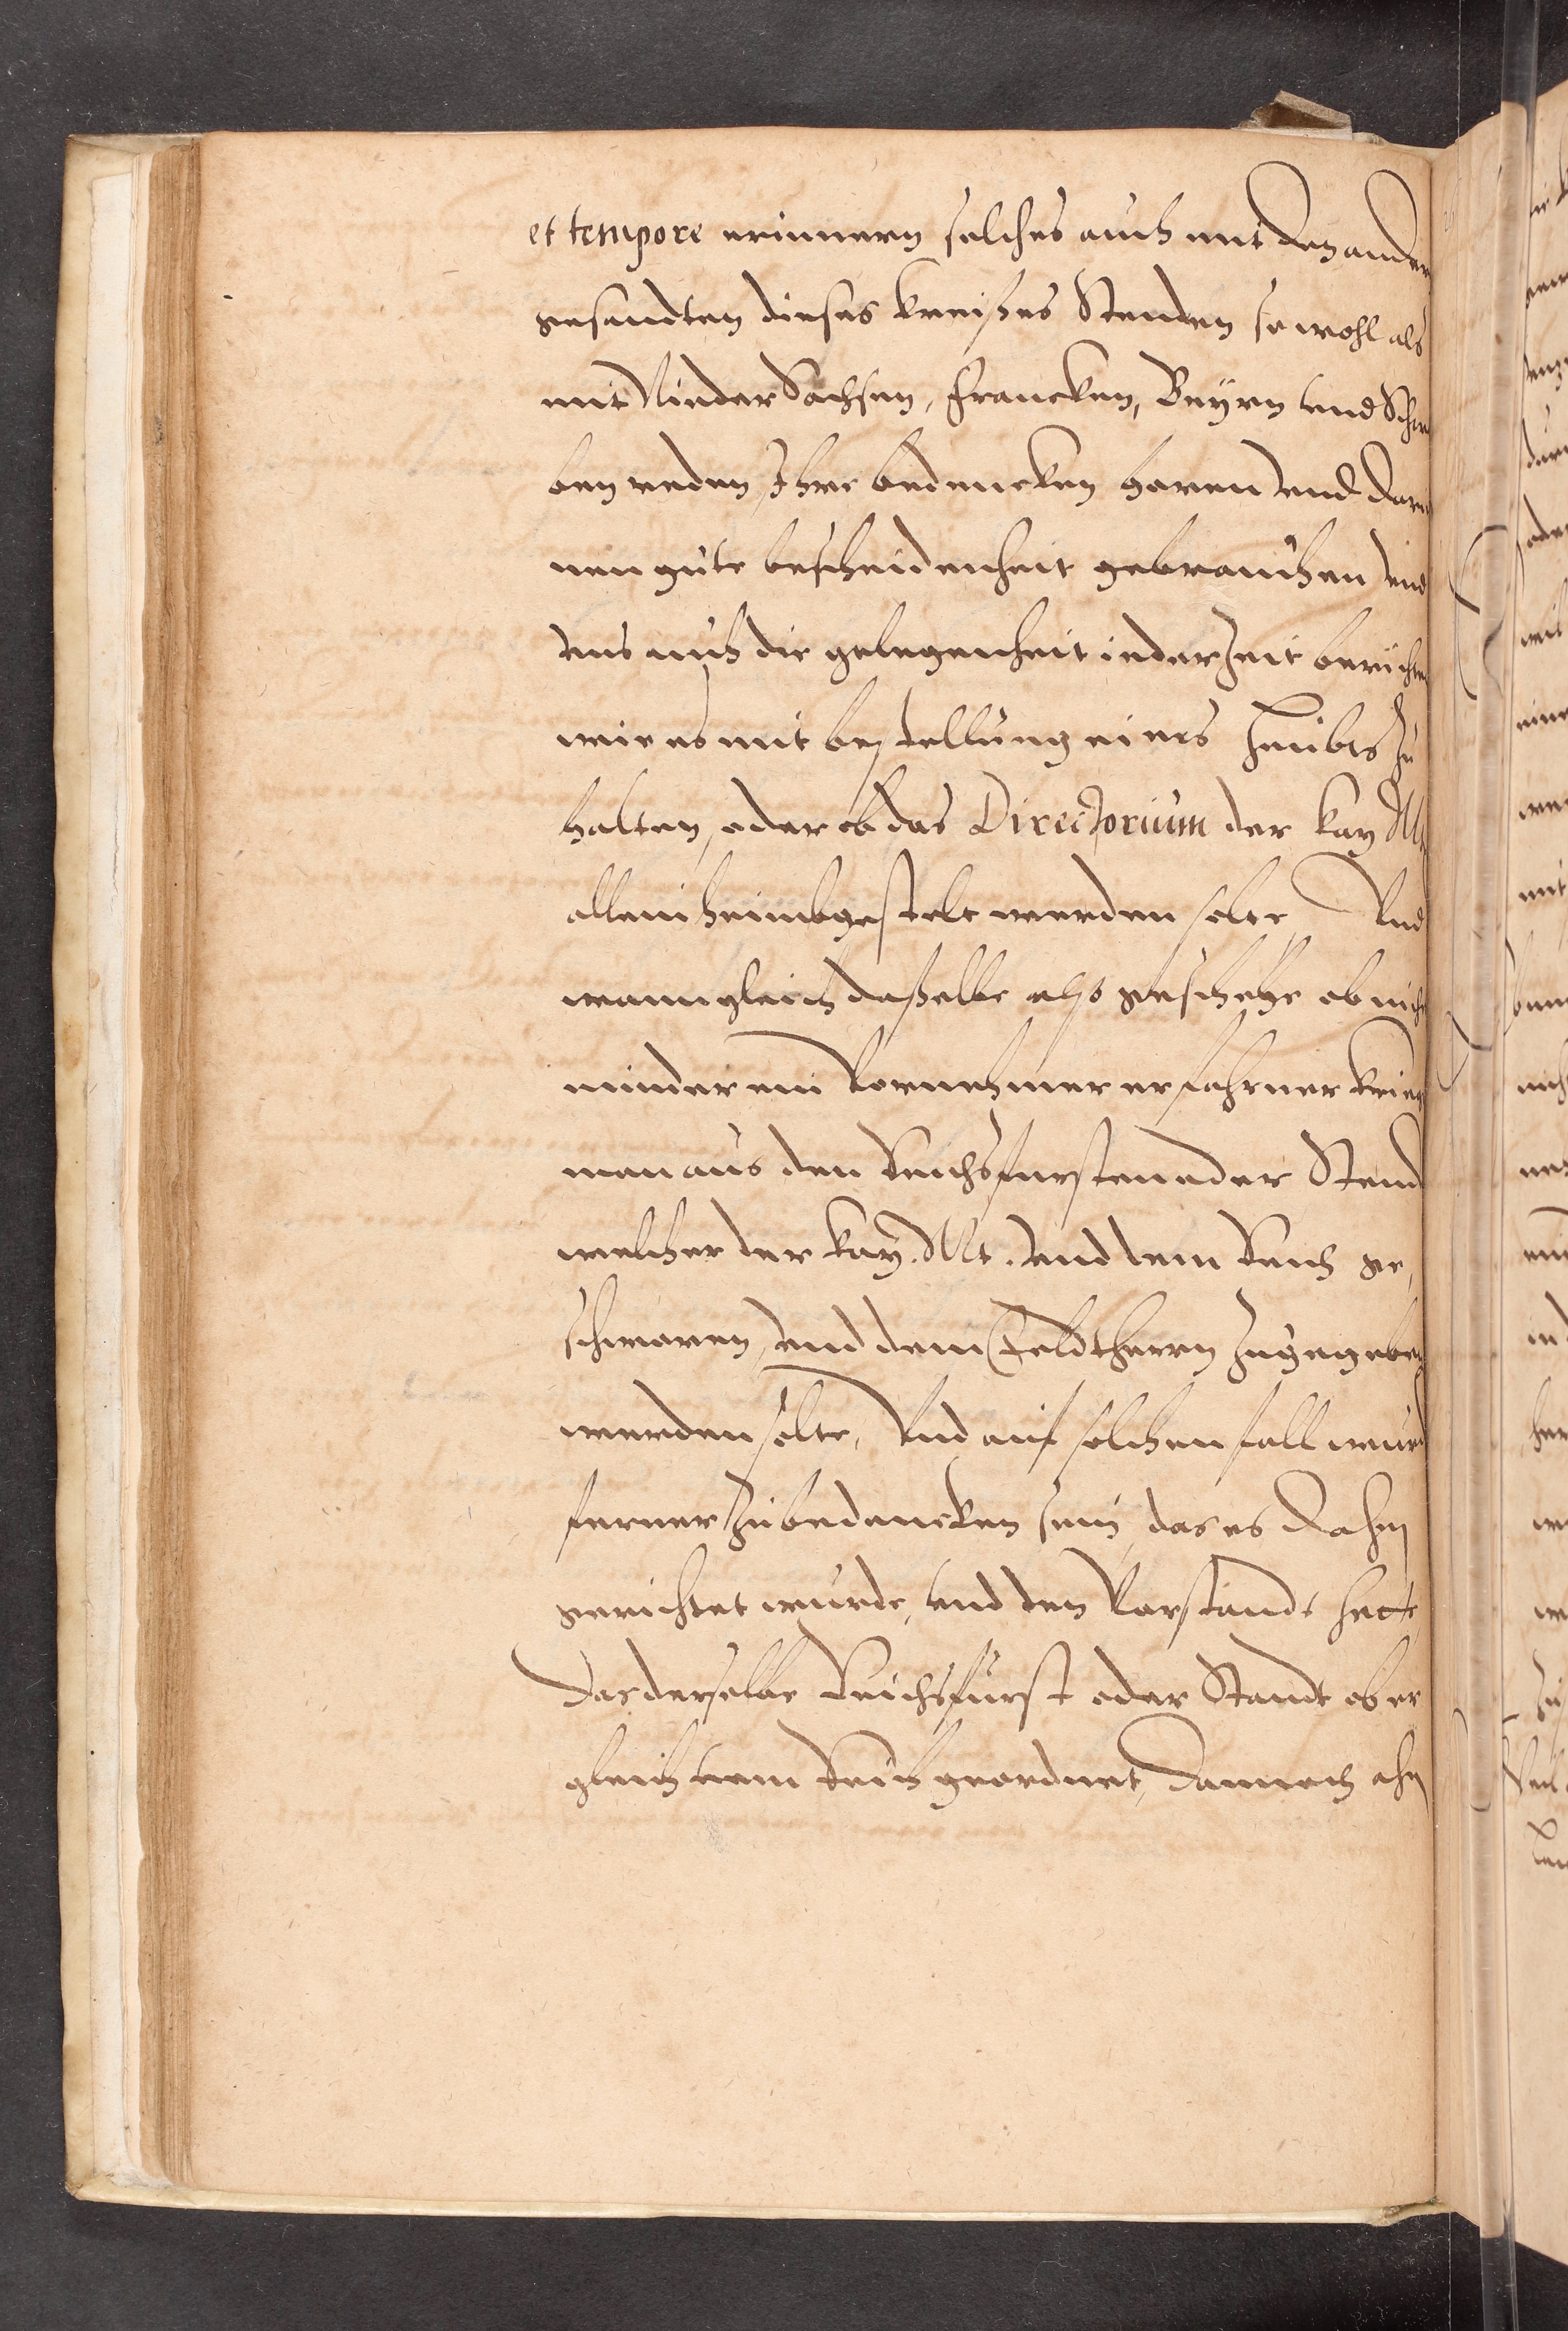 et tempore erinnern solches auch mit den andern
gesandten dieses kreißes Stenden so wohl als
mit Nieder Sachsen, Francken, Beÿrn vnd Schwa
ben reden, Ihre bedencken horen vnd darin
nen gute bescheidenheit gebrauchen vnd
vns auch die gelegenheit ieder Zeit berichten
wie es mit bestellung eines Heubts zu
halten, oder ob das Directorium der Kay Mt
allein heimbgestelt werden solte, Vnd
wann gleich daßelbe also geschehe ob nicht
minder ein Vornehmer erfahrner krieg
man aus den Reichsfursten oder Stend
welcher der Kay. Mt. vnd dem Reich ge,
schworen, vnd dem Feldtherrn zugegeben
werden solte, Vnd auf solchen fall wurd
ferner zu bedencken sein, das es dahin
gerichtet wurde, vnd den Vorstandt hette,
Das derselbe Reichsfurst oder Standt ob er
gleich vom Reich geordnet, dannoch ahn